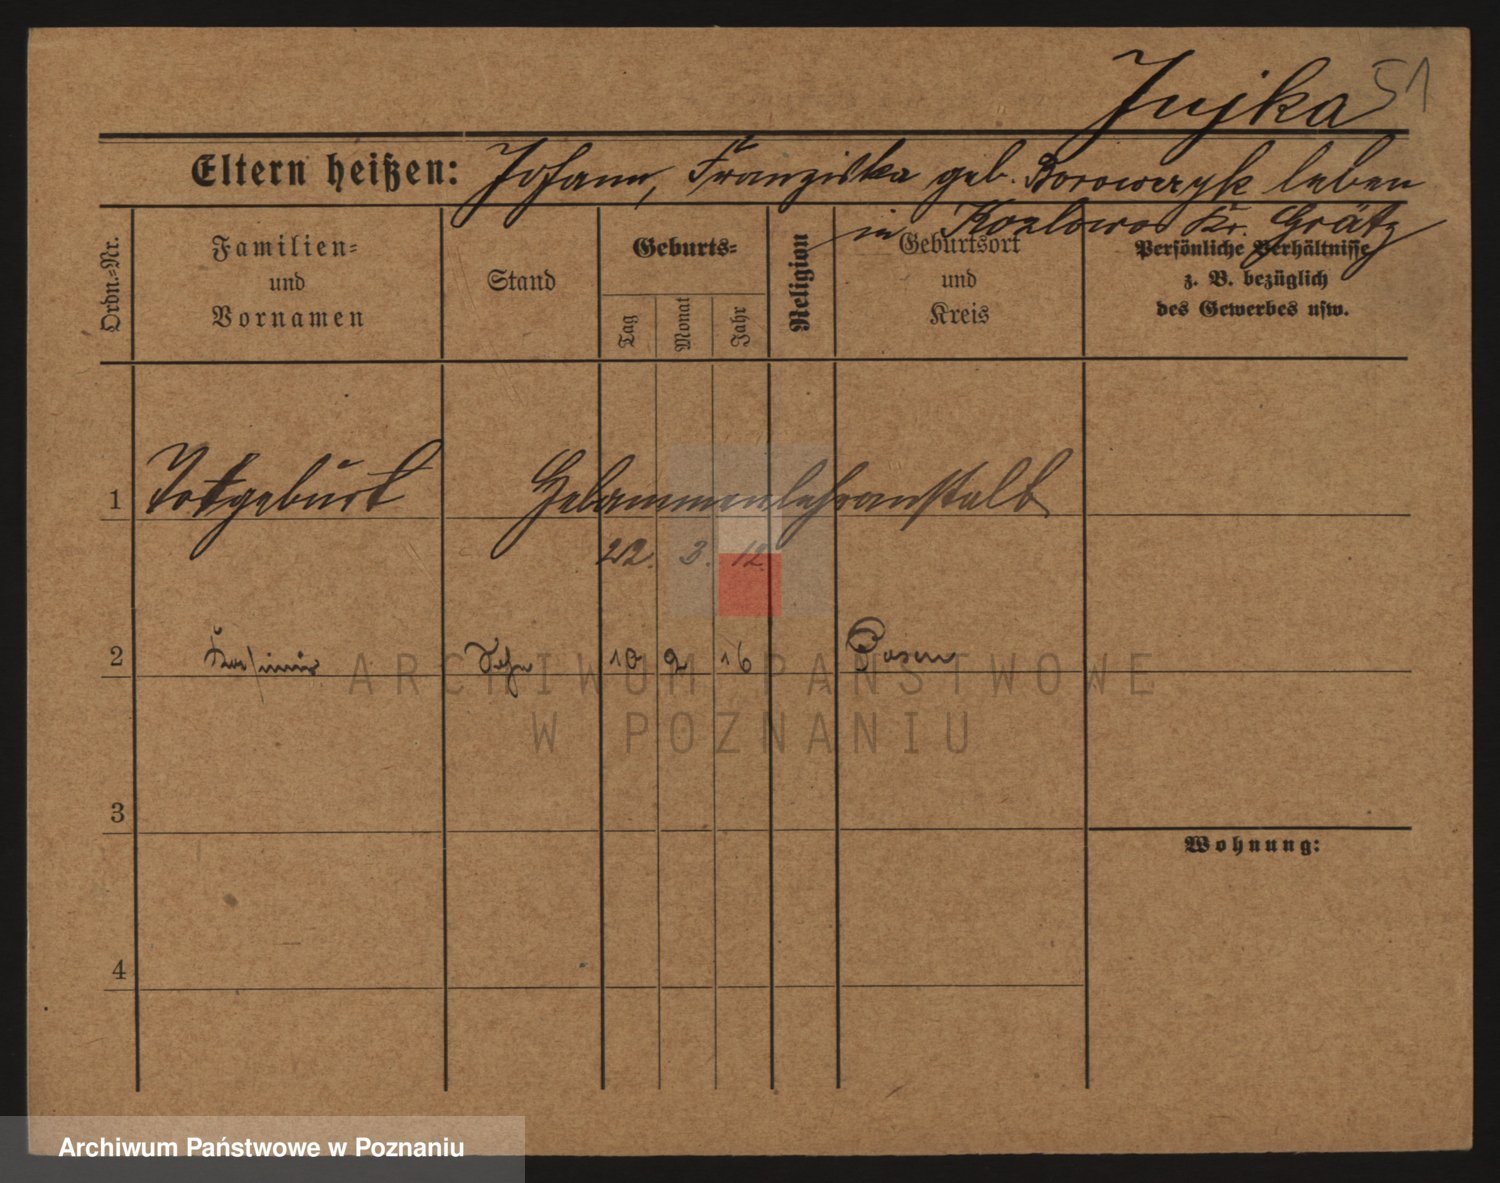 Jujka 51
Eltern heißen: Johann, Franziska geb. Borowczyk leben
in Kozlowo Kr. Grätz
Ordn.-Nr.
Familien-
und
Vornamen
Stand
Geburts-
Tag
Monat
Jahr
Religion
Geburtsort
und
Kreis
Persönliche Verhältnisse
z. B. bezüglich
des Gewerbes usw.
1 Totgeburt Hebammenlehranstalt
22. 3. 12.
2 Kasimir Sohn 10 2 16 Posen
ARCHIWUM PAŃSTWOWE
W POZNANIU
3
Wohnung:
4
Archiwum Państwowe w Poznaniu